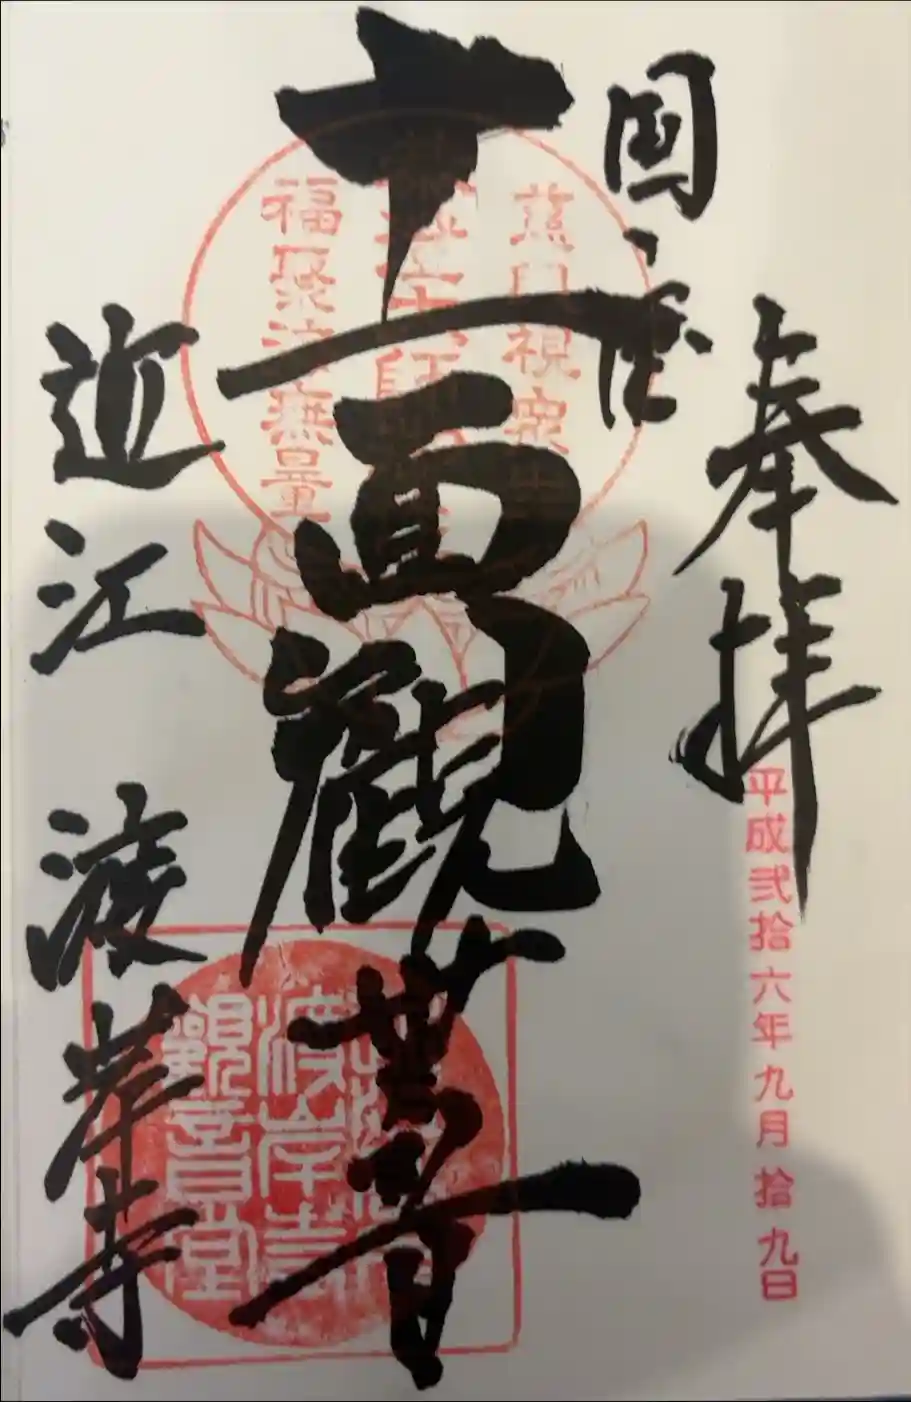 奉拝
平成弐拾六年九月拾九日
国宝
慈眼視衆生
十一面觀世音
福聚海無量
渡岸寺
觀音堂
近江 渡岸寺